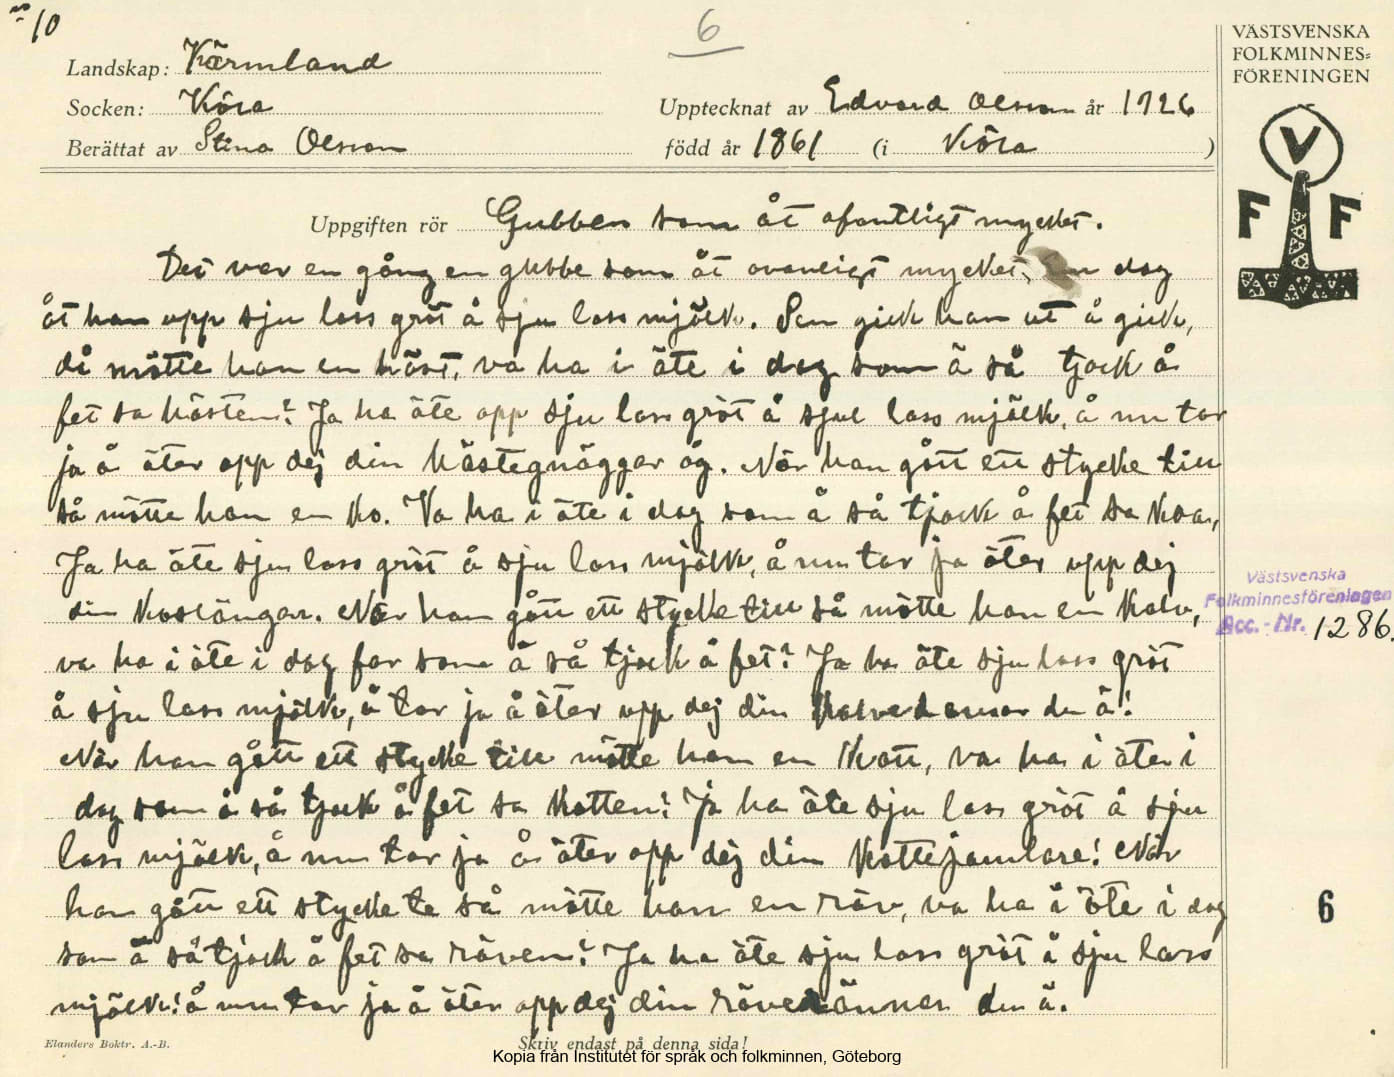 no 10
6
Landskap: Värmland
Socken: Köla
Upptecknat av Edvard Olsson år 1926
Berättat av Stina Olsson
född år 1861 (i Köla )
VÄSTSVENSKA
FOLKMINNES=
FÖRENINGEN
V
F F
Uppgiften rör Gubben som åt ofantligt mycket.
Det var en gång en gubbe som åt ovanligt mycket, en dag
åt han upp sju lass gröt å sju lass mjölk. Sen gick han ut å gick,
då mötte han en häst, va ha i äte i dag som ä så tjock å
fet sa hästen? Ja ha äte opp sju lass gröt å sju lass mjölk, å nu tar
ja å äter opp dej din hästegnäggar åg. När han gått ett stycke till
så mötte han en ko. Va ha i äte i dag som ä så tjock å fet sa koa,
Ja ha äte sju lass gröt å sju lass mjölk, å nu tar ja äter upp dej
din koslångar. När han gått ett stycke till så mötte han en kalv,
va ha i äte i dag far som ä så tjock å fet? Ja ha äte sju lass gröt
å sju lass mjölk, å tar ja å äter upp dej din du ä!
När han gått ett stycke till mötte han en katt, va ha i äte i
dag som ä så tjock å fet sa katten? Ja ha äte sju lass gröt å sju
lass mjölk, å nu tar ja å äter opp dej din kattejamlare! När
han gått ett stycke te så mötte han en räv, va ha i äte i dag
som ä så tjock å fet sa räven? Ja ha äte sju lass gröt å sju lass
mjölk! å nu tar ja å äter opp dej din du ä.
Västsvenska
Folkminnesföreningen
Acc.-Nr. 1286.
6
Elanders Boktr. A.-B.
Skriv endast på denna sida!
Kopia från Institutet för språk och folkminnen, Göteborg